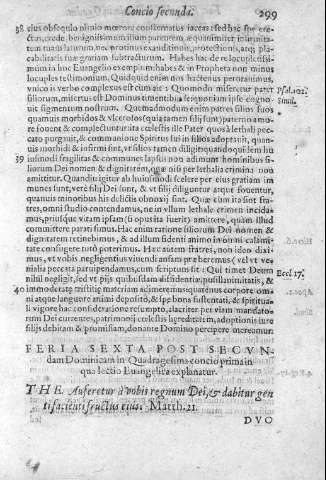 Concio secunda. 299
38 eius obsequio
tus, crede, benignissimum illum parentem,
tem tuarum laborum, hoc protinus exauditionis, protectionis, atq; placabilitatis suæ gratiam subtracturum. Habes hac de re locupletissimum
in hoc Euangelio exemplum: habes & in Propheta non minus
locuples testimonium. Quid quid enim nos hactenus perorauimus,
vnico is verbo complexus est cum ait: Quomodo miseretur pater Psal.102.
filiorum, misertus est Dominus timentibus se: quoniam ipse cognouit Simil.
figmentum nostrum. Quemadmodum enim patres filios suos
quamuis morbidos & vlcerosos (quia tamen filij sunt) paterno amore
fouent & complectuntur: ita cœlestis ille Pater quos à lethali peccato
purgauit, & communione Spiritus sui in filios adoptauit, quamuis
morbidi & infirmi sint, vt filios tamen diligit: quando quidem huiusmodi
39 fragilitas & communes lapsus non adimunt hominibus filiorum
Dei nomen & dignitatem, quæ nisi per lethalia crimina non
amittitur. Quandiu igitur ab huiusmodi scelere per eius gratiam immunes
sunt, verè filij Dei sunt, & vt filij diliguntur atque fouentur,
quamuis minoribus his delictis obnoxij sint. Quæ cum ita sint fratres,
omni studio contendamus, ne in vllum lethale crimen incidamus,
priusque vitam ipsam (si oposita fuerit) amittere, quam illud
committere parati simus. Hac enim ratione filiorum Dei nomen &
dignitatem retinebimus, & ad illum fidenti animo in omni calamitate
confugere tutò poterimus. Hæc autem fratres, non ideo diximus,
vt vobis negligentius viuendi ansam præberemus (vel vt venialia
peccata paruipendamus, cum scriptum sit: Qui timet Deum Eccl.17.
nihil negligit) sed vt pijs quibusdam diffidentiæ, pusillanimitatis, &
40 immoderatæ tristitiæ materiam adimeremus: quatenus corpore omni
atque languore animi deposito, & spe bona sustentati, & spirituali
vigore hac consideratione resumpto, alacriter per viam mandatorum
Dei currentes, patrimonij cœlestis hæreditatem, adoptionis iure
filijs debitam & promissam, donante Domino percipere mereamur.
FERIA SEXTA POST SECVN-
dam Dominicam in Quadragesima concio prima: in
qua lectio Euangelica explanatur.
THE. Auferetur à vobis regnum Dei, & dabitur gen
ti facienti fructus eius. Matth.21.
DVO